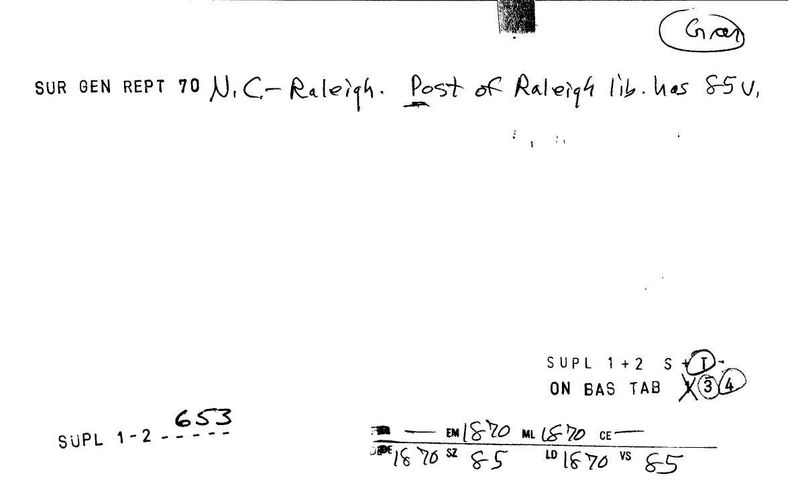 SUR GEN REPT 70 N.C.- Raleigh. Post of Raleigh lib. has 85 v.
SUPL 1+2 S + T -
ON BAS TAB X 3 4
653
SUPL 1-2 -----
— EM 1870 ML 1870 CE —
1870 SZ 85 LD 1870 VS 85